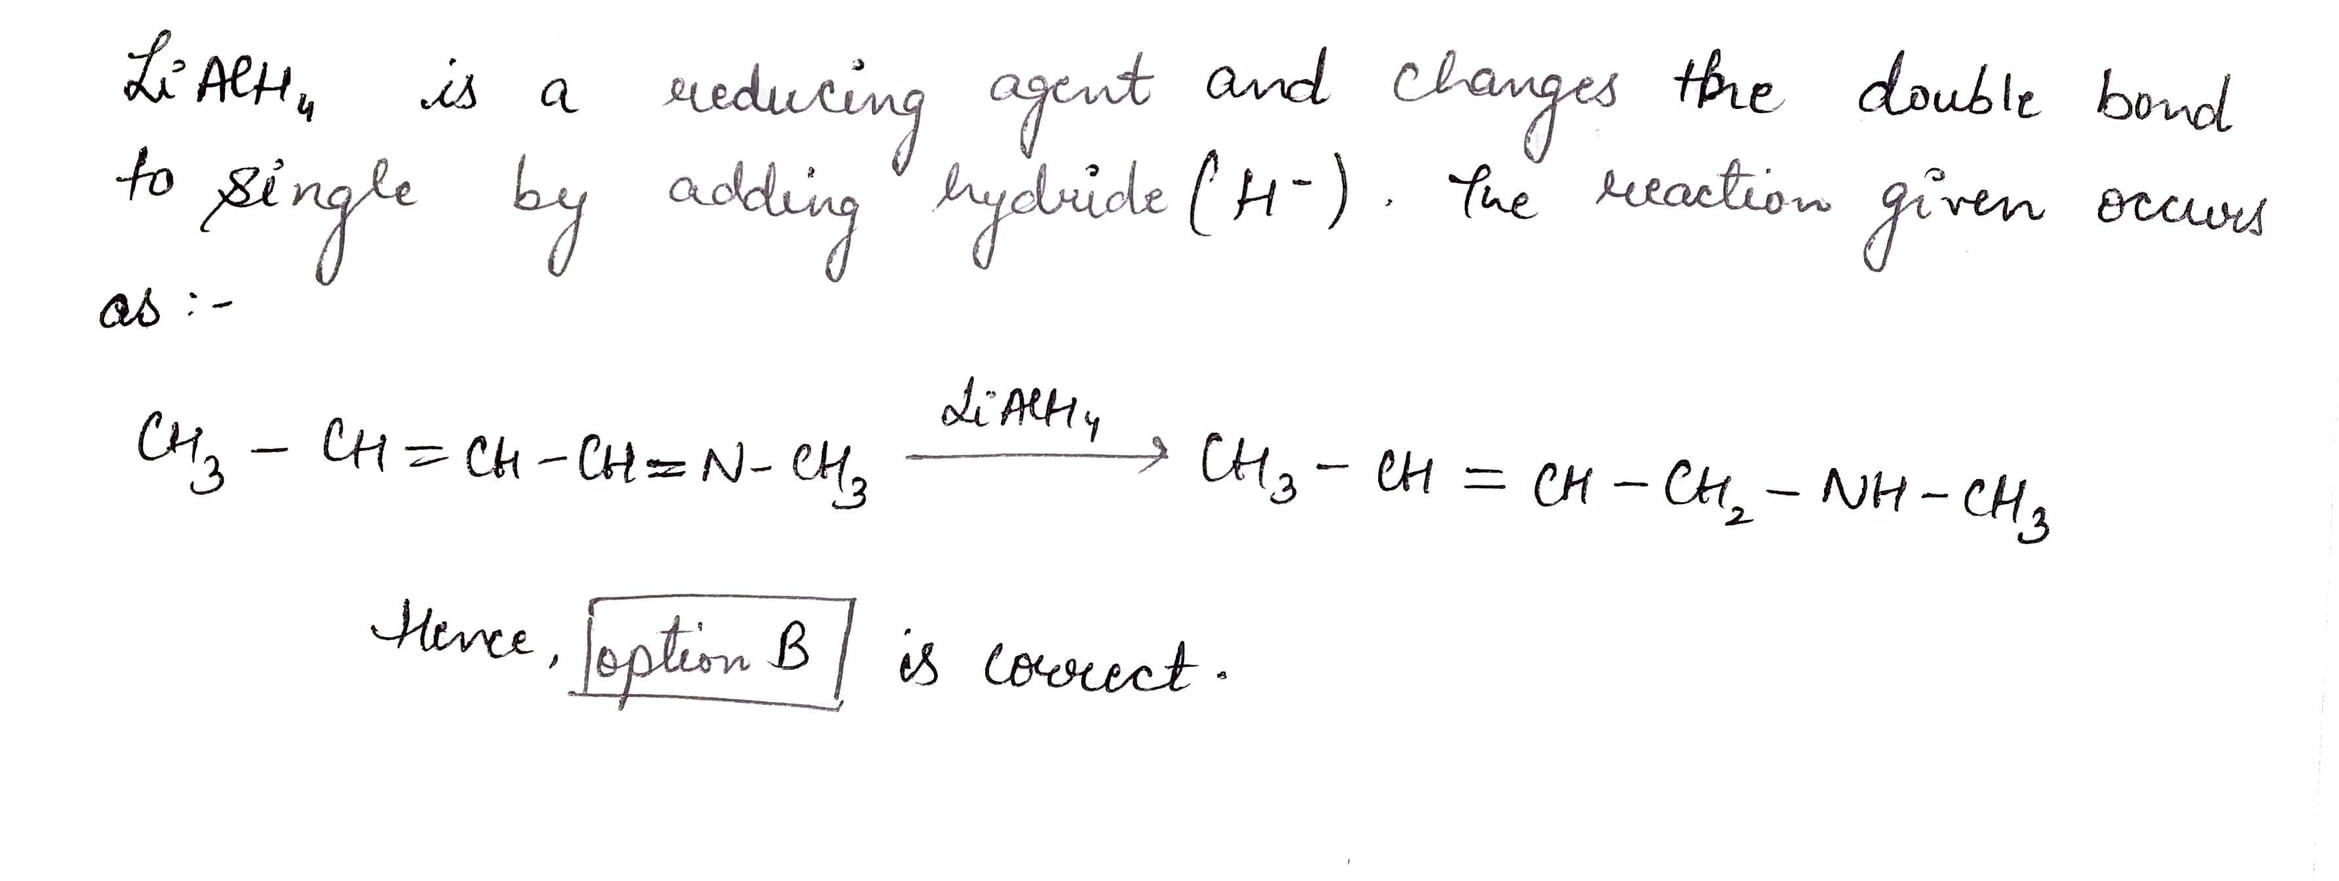 LiAlH₄ is a reducing agent and changes the double bond
to single by adding hydride (H-). The reaction given occurs
as :-
LiAlH₄
CH₃ - CH = CH - CH = N - CH₃ ⟶ CH₃ - CH = CH - CH₂ - NH - CH₃
Hence, option B is correct.